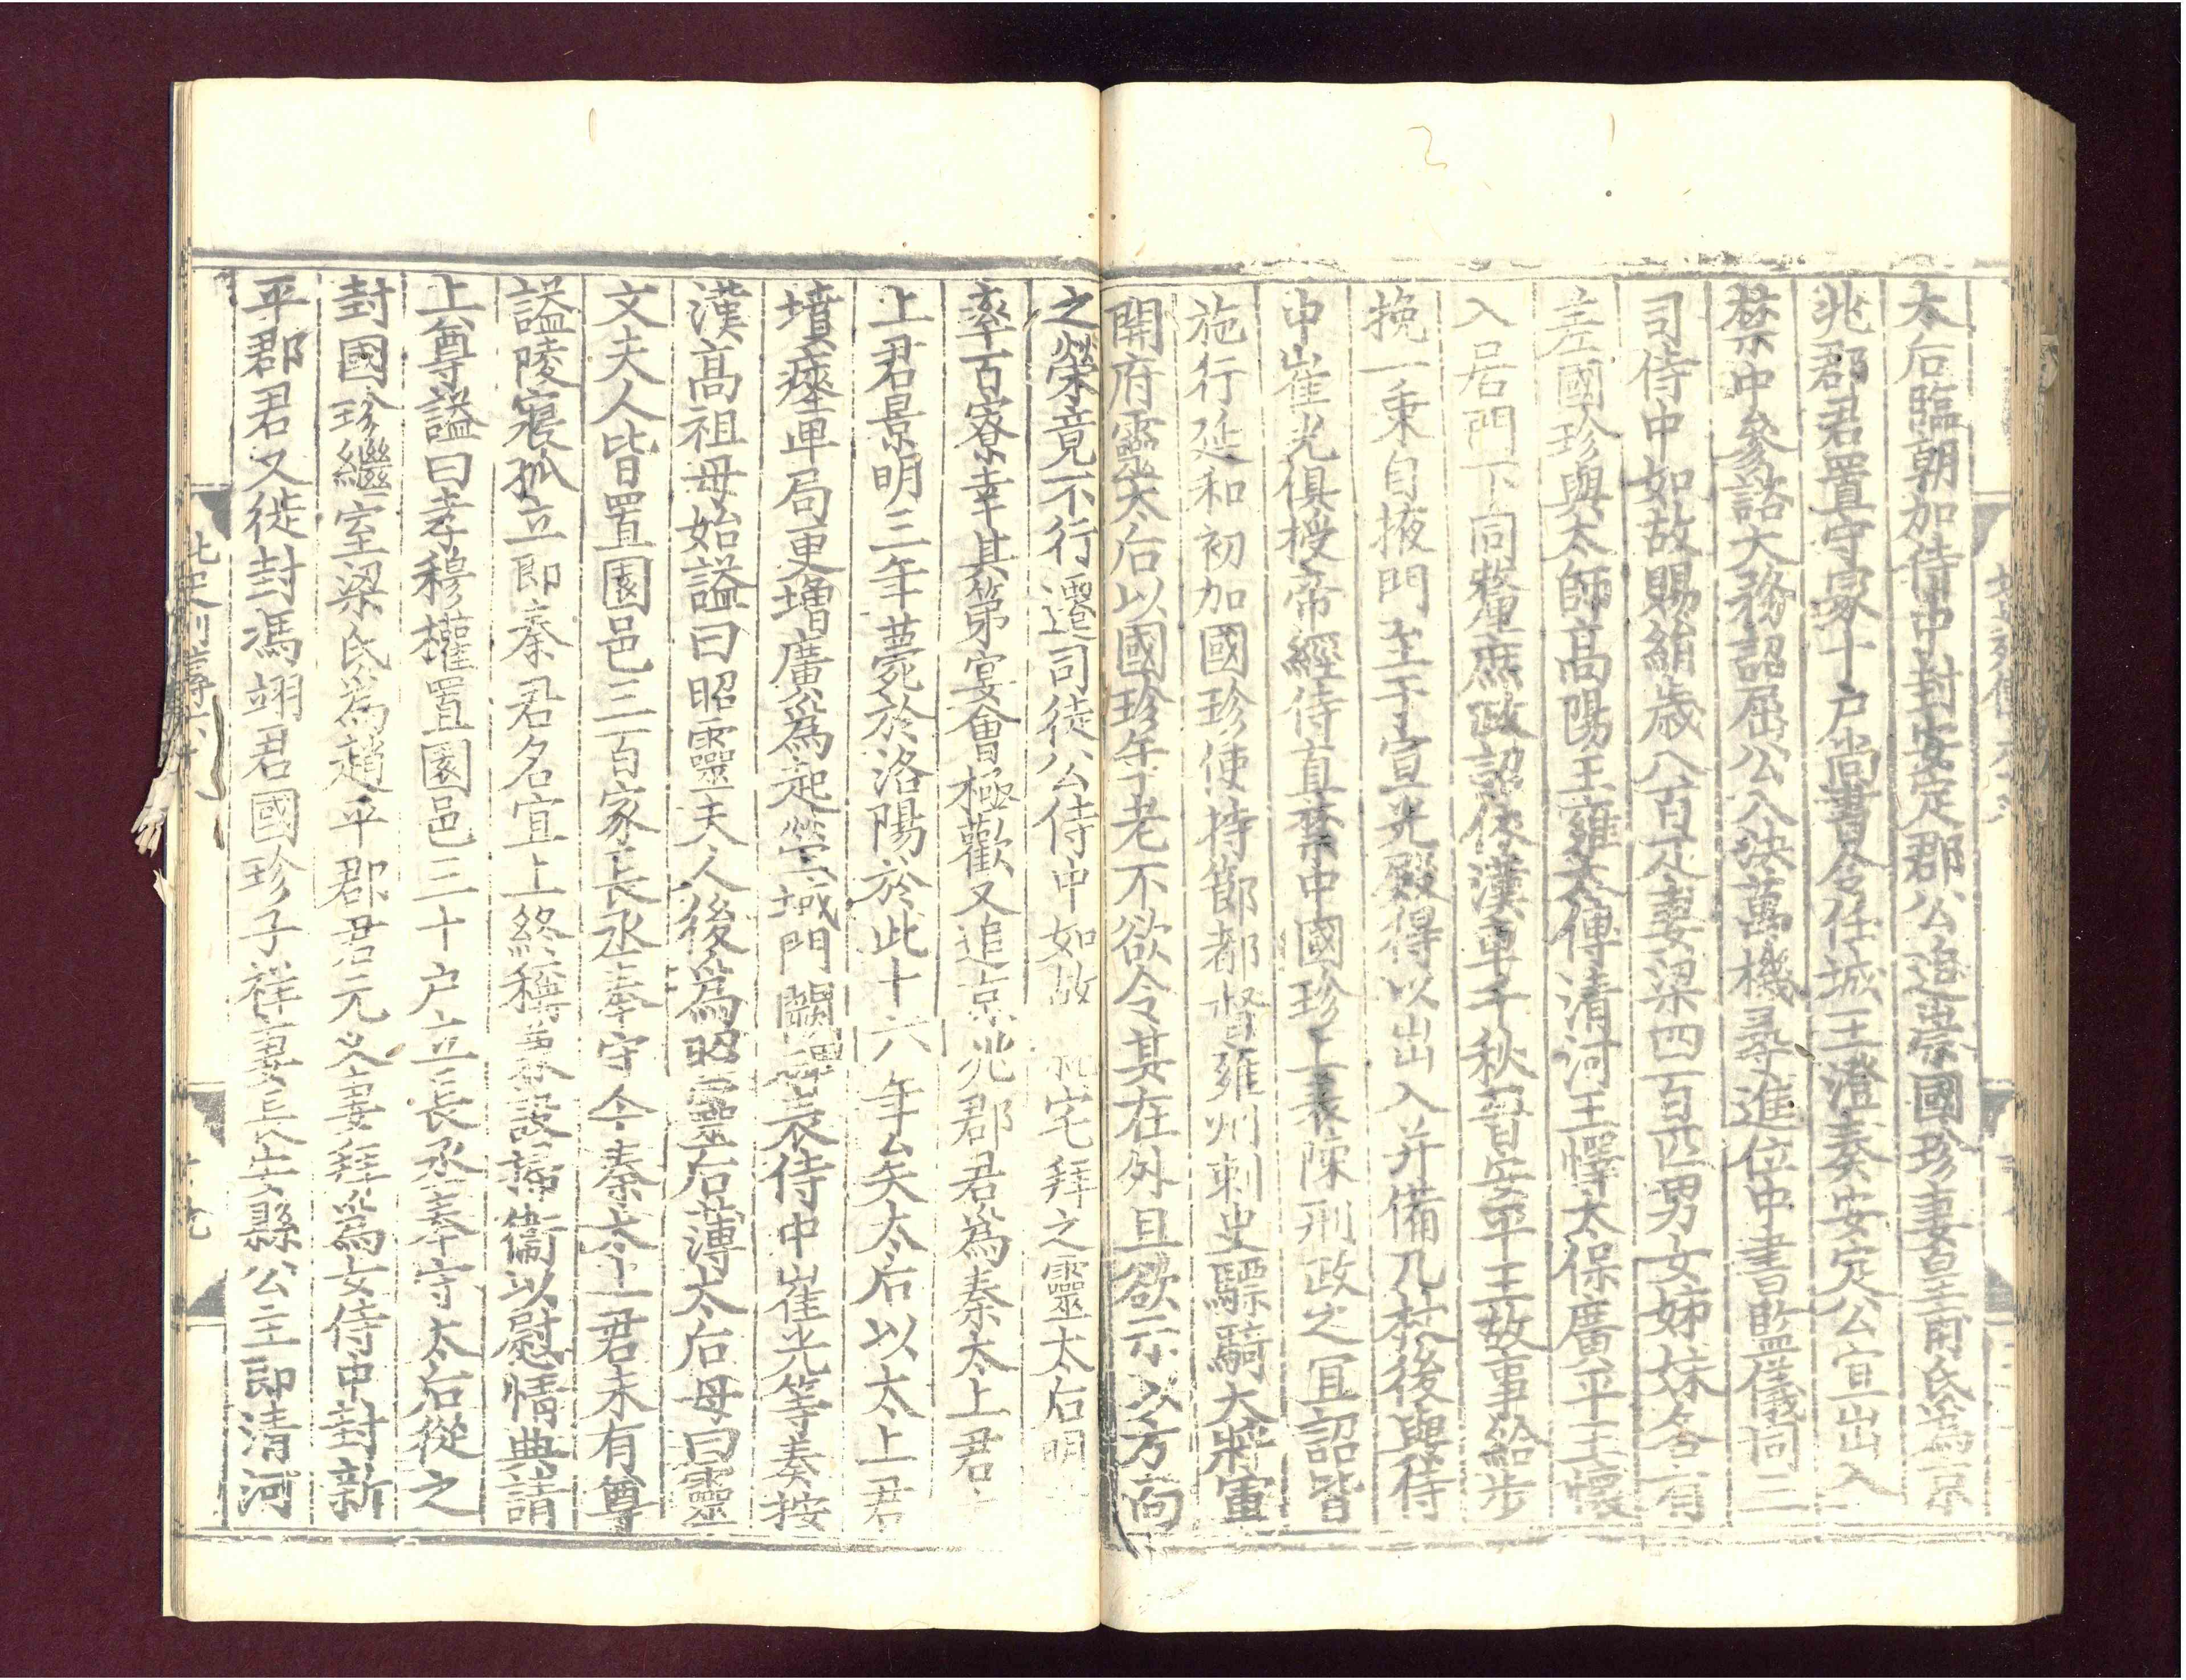 太后臨朝加侍中封安定郡公追崇國珍妻皇甫氏爲京
兆郡君置守冢十戶尚書令任城王澄奏安定公宜出入
禁中參諮大務詔屈公入決萬機尋進位中書監儀同三
司侍中如故賜絹歲八百疋妻梁四百匹男女姊妹各有
差國珍與太師高陽王雍太傅清河王懌太保廣平王懷
入居門下同釐庶政詔依漢車千秋晉安平王故事給步
挽一乗自掖門至于宣光殿得以出入并備几杖後與侍
中崔光俱授帝經侍直禁中國珍上表陳刑政之宜詔皆
施行延和初加國珍使持節都督雍州刺史驃騎大將軍
開府靈太后以國珍年老不欲令其在外且欲示以方面
之榮竟不行遷司徒公侍中如故 就宅拜之靈太后明
率百寮幸其第宴會極歡又追京兆郡君爲秦太上君
上君景明三年薨於洛陽於此十六年矣太后以太上君
墳瘞卑局更增廣爲起塋域門闕碑表侍中崔光等奏按
漢高祖母始謚曰昭靈夫人後爲昭靈后薄太后母曰靈
文夫人皆置園邑三百家長丞奉守今秦太上君未有尊
謚陵寢孤立即秦君名宜上終稱兼設掃衞以慰情典請
上尊謚曰孝穆權置園邑三十戶立長丞奉守太后從之
封國珍繼室梁氏爲趙平郡君元叉妻拜爲女侍中封新
平郡君又徙封馮翊君國珍子祥妻長安縣公主即清河
北史列傳六十八